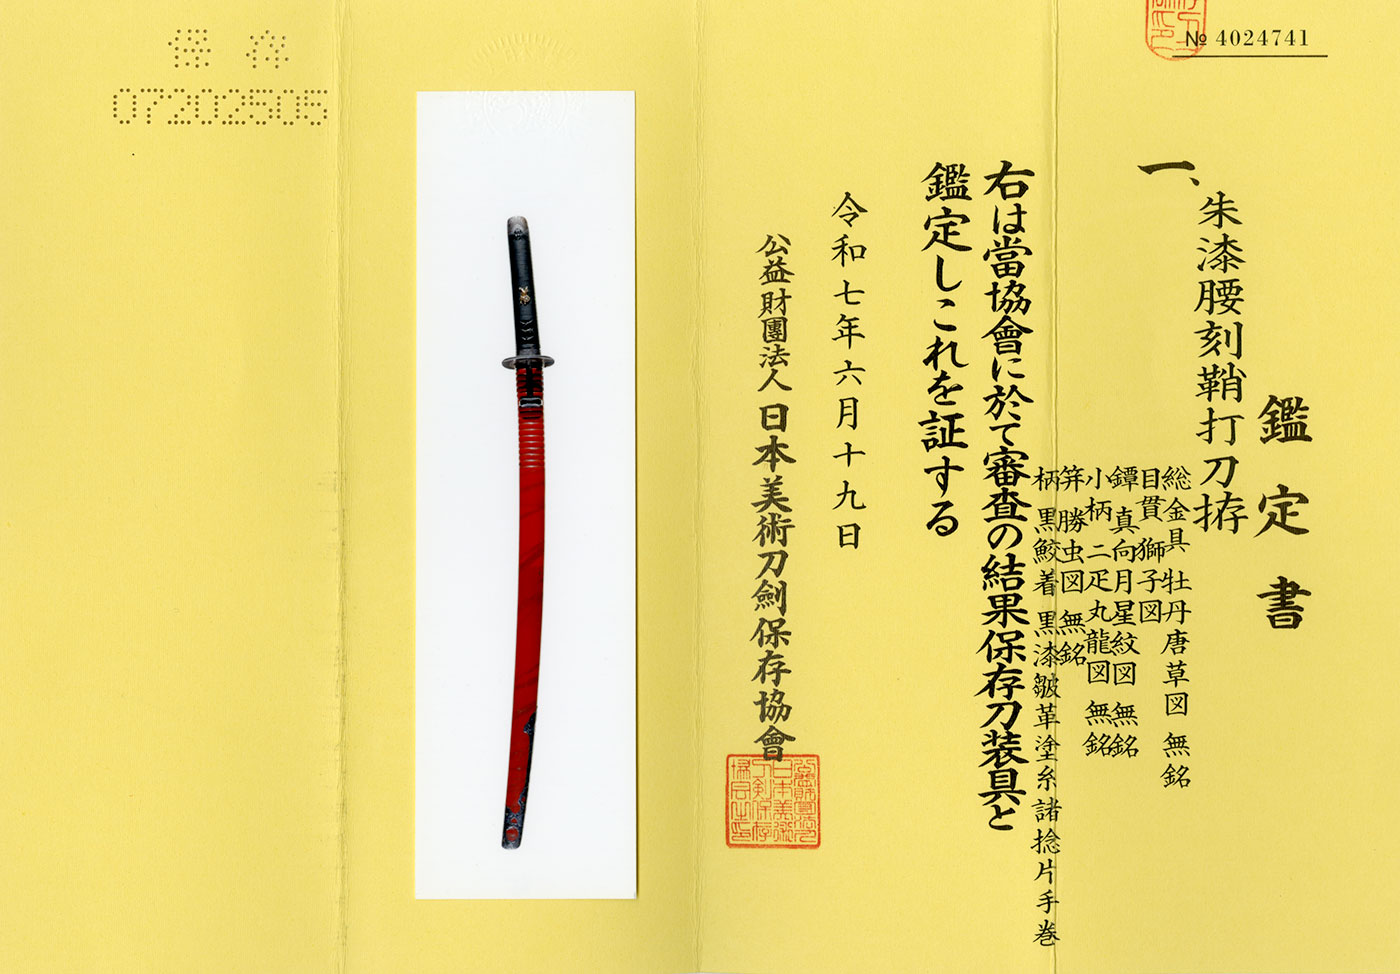 № 4024741
鑑定書
一、朱漆腰刻鞘打刀拵
総金具 牡丹唐草図 無銘
目貫 獅子図
鐔 真向月星紋図 無銘
小柄 二疋丸龍図 無銘
笄 勝虫図 無銘
柄 黒鮫着 黒漆皺革塗糸諸捻片手巻
右は當協會に於て審査の結果保存刀装具と
鑑定しこれを証する
令和七年六月十九日
公益財團法人 日本美術刀劍保存協會
保存
07202505